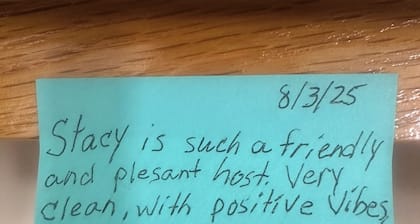 8/3/25
Stacy is such a friendly
and plesant host. Very
clean, with positive vibes,